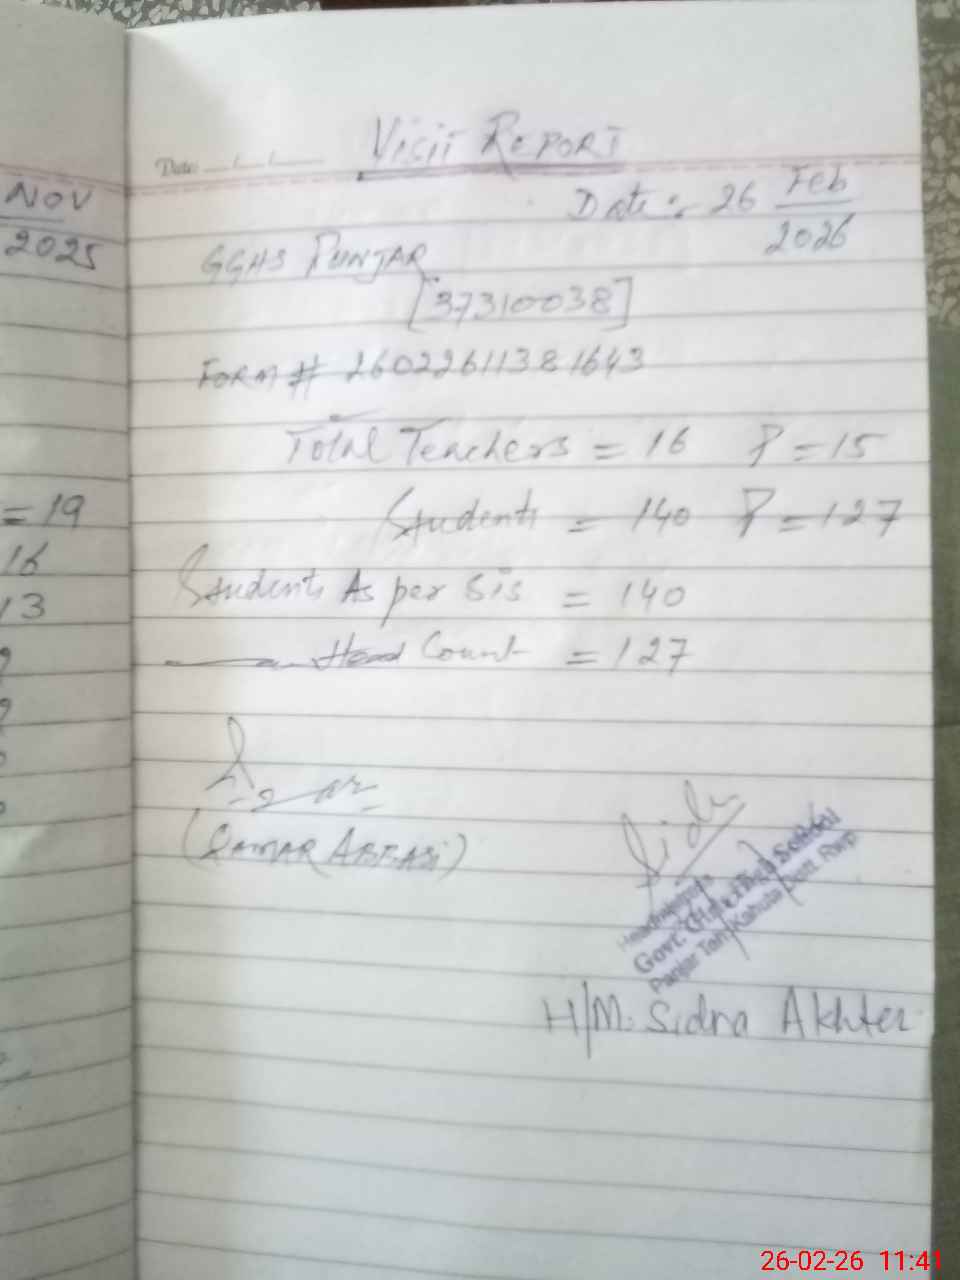 NOV
2025
= 19
16
13
Date:
VISIT REPORT
Date:- 26 Feb
2026
GGHS PUNJAR
[37310038]
FORM # 26022611381643
Total Teachers = 16 P = 15
Students = 140 P = 127
Students As per Sis = 140
Head Count = 127
(QAMAR ABBASI)
Sidr
Headmistress
Govt. Girls High School
Panjar Teh. Kahuta Distt. Rwp
H/M. Sidra Akhter
26-02-26 11:41